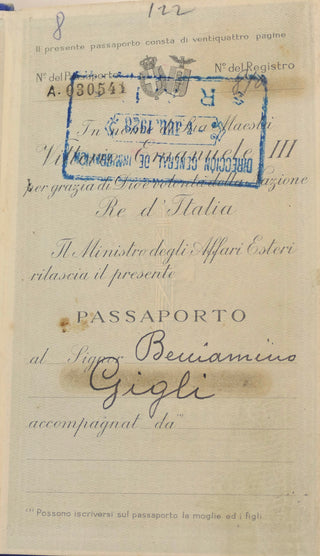 8
122
Il presente passaporto consta di ventiquattro pagine
N.º del Passaporto
N.º del Registro
A. 030541
In nome di Sua Maestà
Vittorio Emanuele III
per grazia di Dio e volontà della Nazione
Re d'Italia
DIRECCIÓN GENERAL DE INMIGRACIÓN
Il Ministro degli Affari Esteri
rilascia il presente
PASSAPORTO
al Signor Beniamino
Gigli
accompagnat da (1)
(1) Possono iscriversi sul passaporto la moglie ed i figli